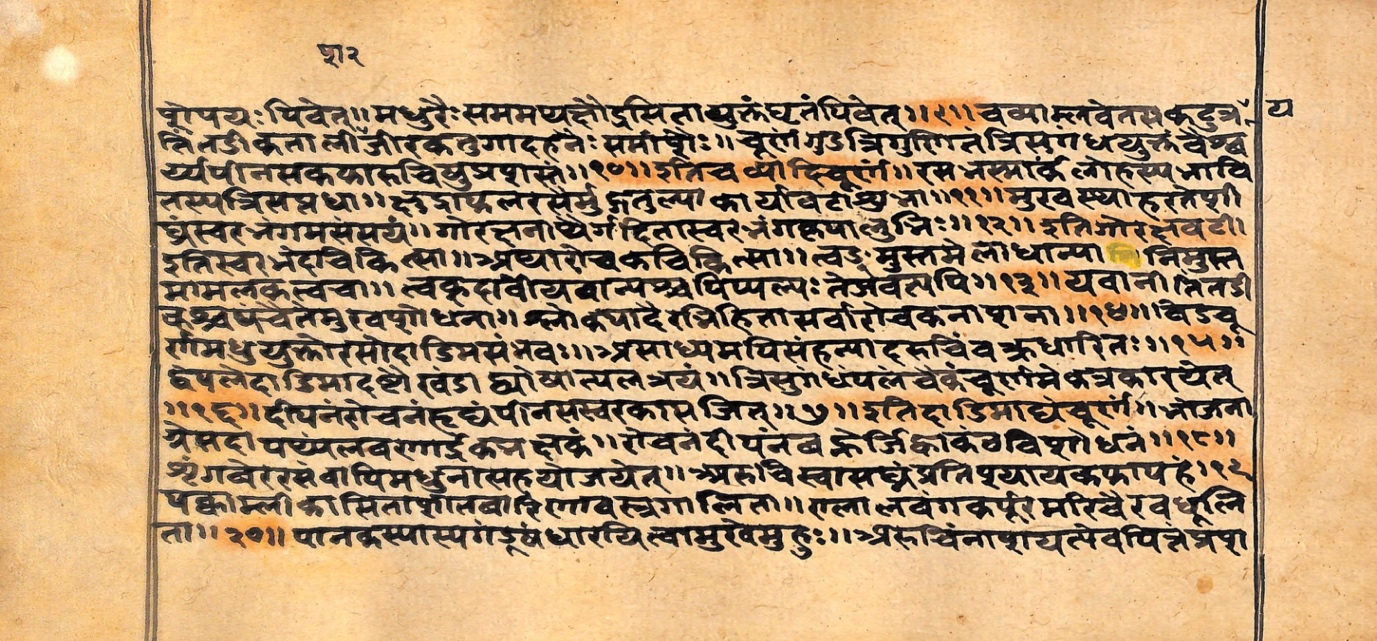 शा२
शेपयः पिवेत्॥ मधुरैः समममध्यक्षौद्रसितायुक्तं घृतं पिवेत्॥९॥ चव्याम्लवेतसकटुत्र य
तिंतडीकतालीशजीरकतुगादहनैः समांशैः॥ चूर्णं गुडत्रिगुणितं त्रिसुगंधयुक्तं वैस्व
र्य्यपीनसकफारुचिषुप्रशस्तं॥१०॥ इतिचव्यादिचूर्णं॥ रसभस्मार्कलोहस्यभावि
तस्यत्रिसप्तधा॥ क्षुद्राफलरसैर्मुद्गतुल्याकार्यावटीशुभा॥११॥ मुखस्थाहरतेशी
घ्रंस्वरभंगमसंसयं॥ गोरक्षनाथैर्गदितास्वरभंगेकृपालुभिः॥१२॥ इतिगोरक्षवटी॥
इतिस्वरभेदचिकित्सा॥ अथारोचकचिकित्सा॥ त्वङ्मुस्तमेलाधान्या निमुस्त
मामलकंत्वचा॥ त्वक्चदार्वीयवान्यश्चपिप्पल्यः तेजोवत्यपि॥१३॥ यवानीतिंतडी
कंचपंचैतेमुखशोधना॥ श्लोकपादैरभिहितासर्वारोचकनाशना॥१४॥ विडचू
र्णमधुयुक्तोरसोदाडिमसंभवः॥ असाध्यमपिसंहन्यादरुचिंवक्त्रधारितः॥१५॥
द्वेपलेदाडिमादष्टौखंडाद्व्योषात्पलत्रयं॥ त्रिसुगंधंपलंचैकंचूर्णमेकत्रकारयेत्
॥१६॥ दीपनंरोचनंहृद्यंपीनसस्वरकासजित्॥७॥ इतिदाडिमाद्यंचूर्णं॥ भोजना
ग्रेसदापथ्यंलवणार्द्रकभक्षणं॥ रोचनंदीपनंवह्नेर्जिह्वाकंठविशोधनं॥१८॥
शृंगवेररसंवापिमधुनासहयोजयेत्॥ अरुचिस्वासघ्नंप्रतिश्यायकफापहं॥१९
पक्वाम्लीकासिताशीतवारिणावस्त्रगालिता॥ एलालवंगकर्पूरमरिचैरवधूलि
ता॥२०॥ पानकस्यास्यगंडूषंधारयित्वामुखेमुहुः॥ अरुचिंनाशयत्येवपित्तंप्रश